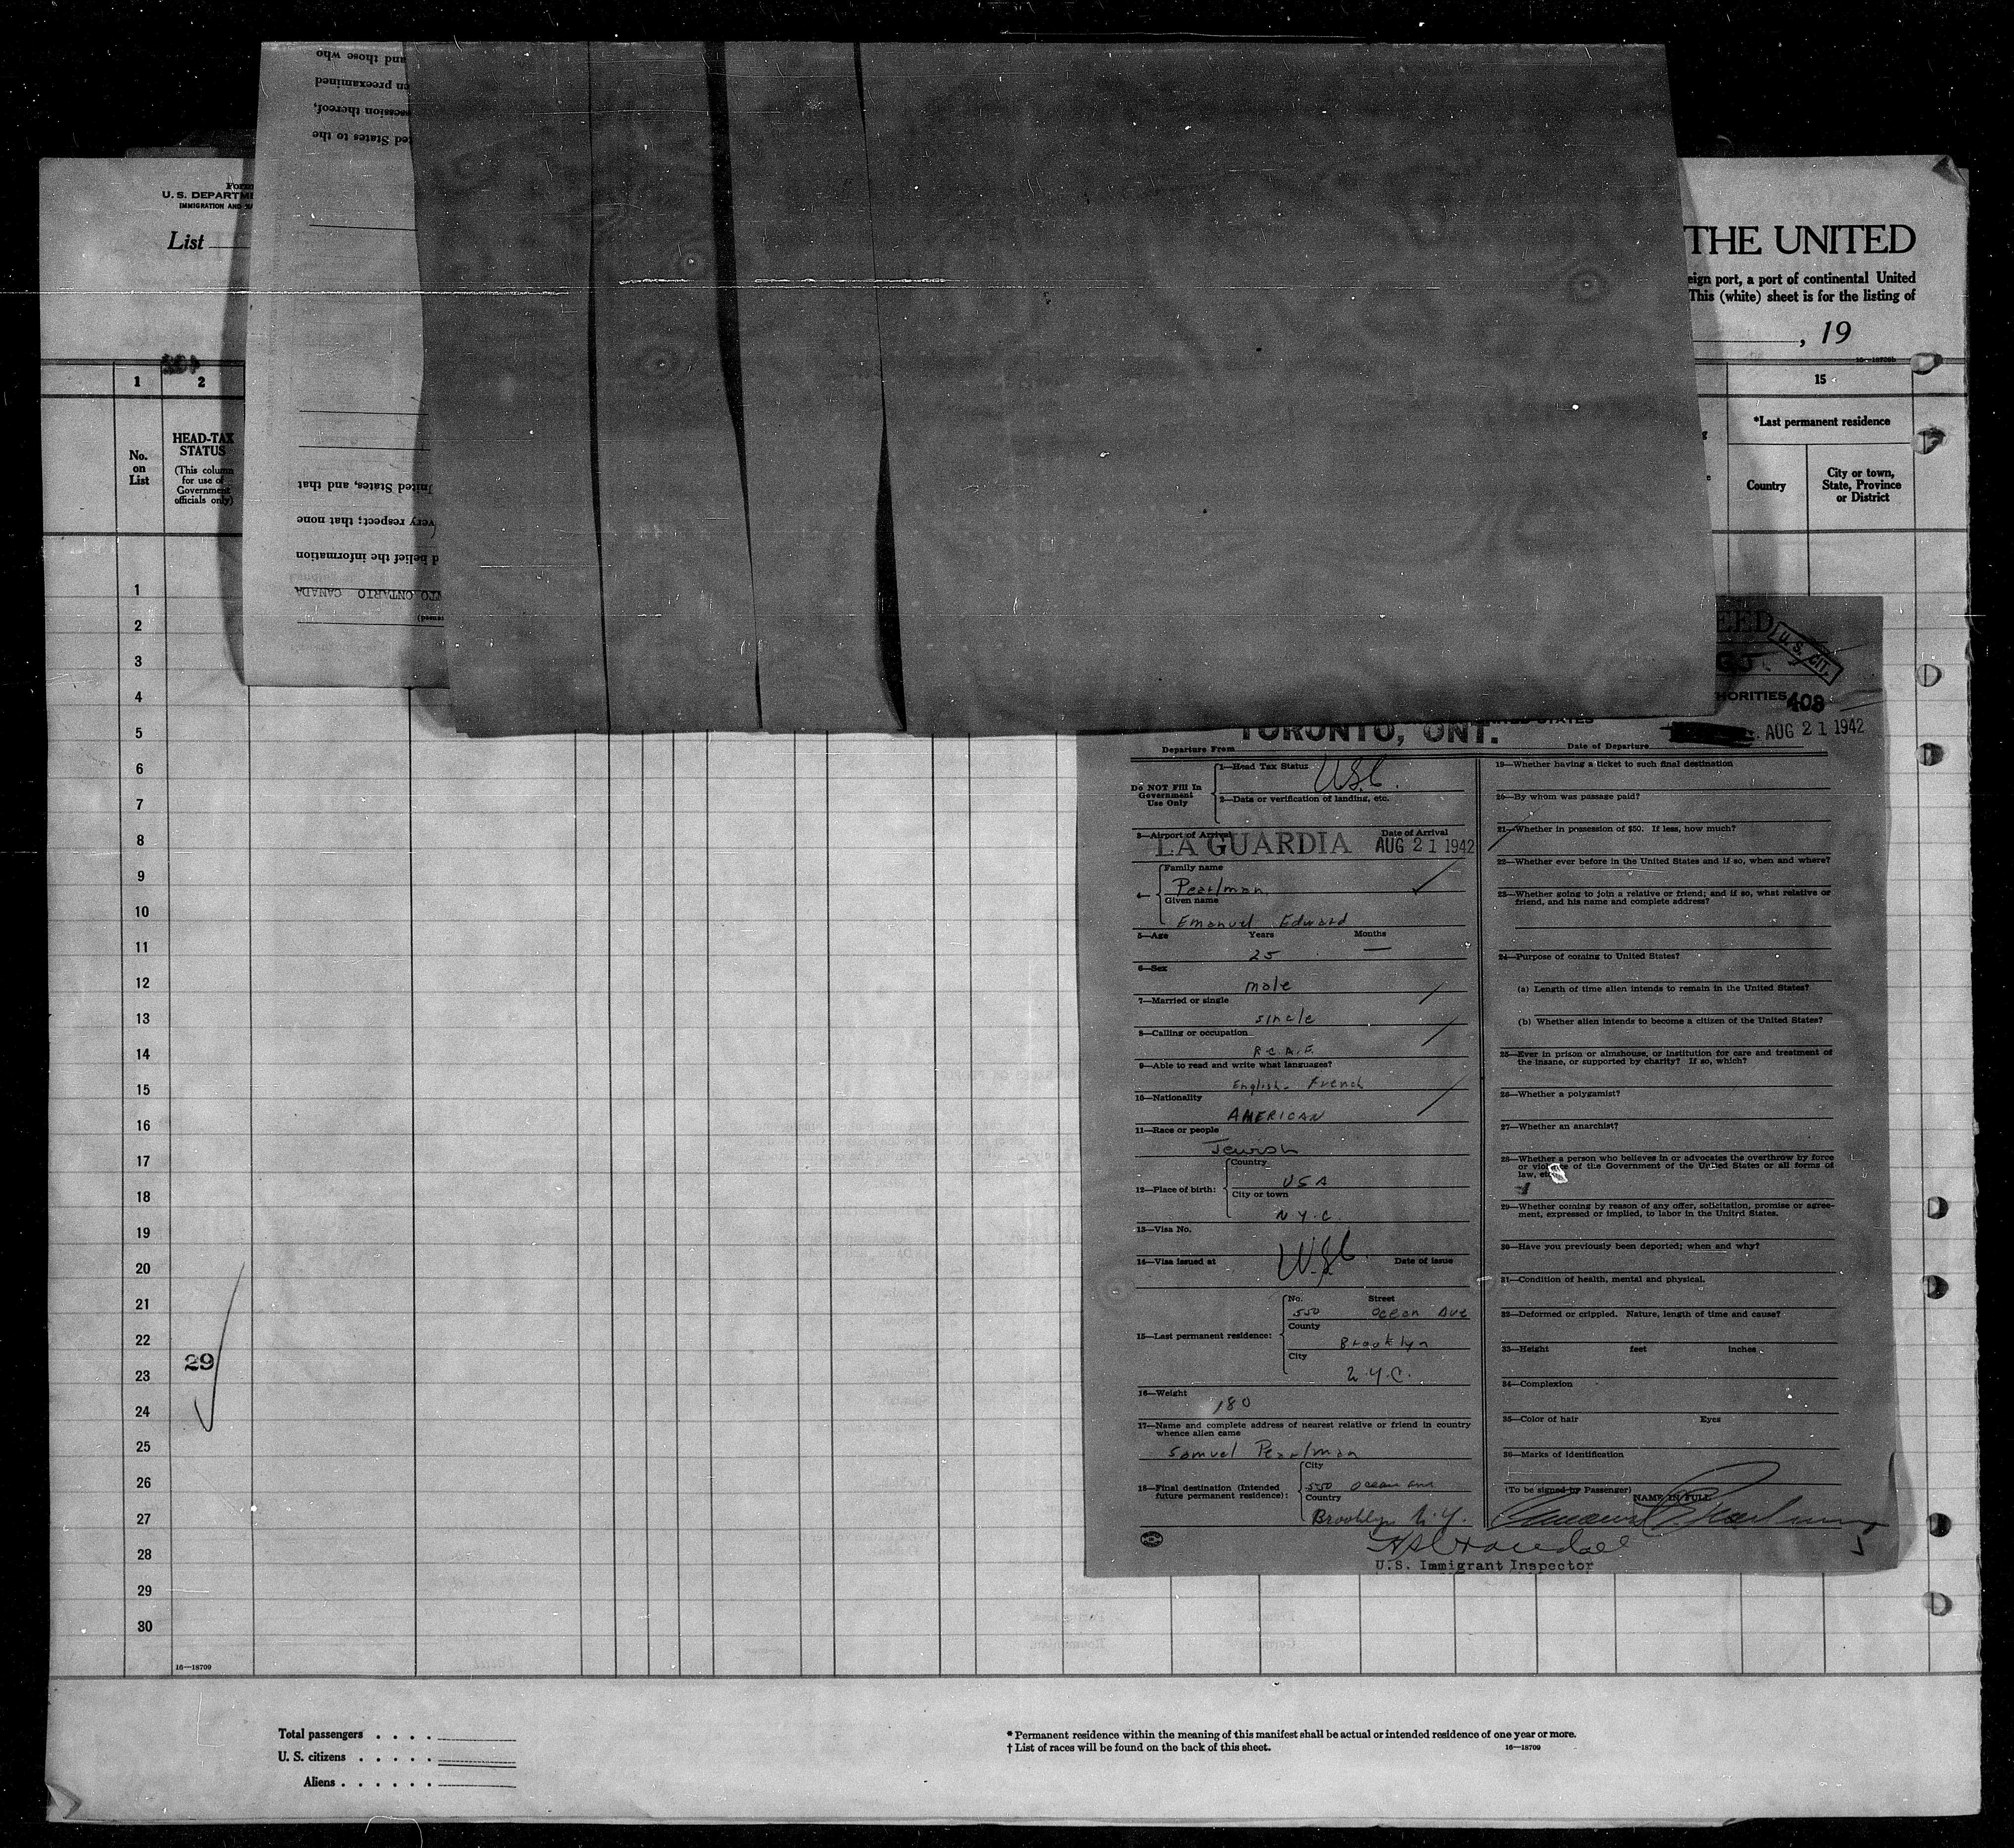 and those who
en preexamined
session thereof,
ted States to the
Form
U. S. DEPARTME
IMMIGRATION AND
List
THE UNITED
eign port, a port of continental United
This (white) sheet is for the listing of
, 19
16—18709b
1
2
15
No.
on
List
HEAD-TAX
STATUS
(This column
for use of
Government
officials only)
*Last permanent residence
Country
City or town,
State, Province
or District
United States, and that
very respect; that none
d belief the information
NTO ONTARIO CANADA
1
2
3
4
5
6
7
8
9
10
11
12
13
14
15
16
17
18
19
20
21
22
23
24
25
26
27
28
29
30
29
16—18709
EED
U. S. CIT.
HORITIES 408
TORONTO, ONT.
Departure From
Date of Departure
AUG 21 1942
Do NOT Fill In
Government
Use Only
1—Head Tax Status USC.
2—Data or verification of landing, etc.
3—Airport of Arrival Date of Arrival
LA GUARDIA AUG 21 1942
4—
Family name
Pearlman
Given name
Emanuel Edward
5—Age Years Months
25 —
6—Sex
male
7—Married or single
single
8—Calling or occupation
R.C.A.F.
9—Able to read and write what languages?
English - French
10—Nationality
AMERICAN
11—Race or people
Jewish
12—Place of birth:
Country
USA
City or town
N.Y.C.
13—Visa No.
USC.
14—Visa issued at Date of issue
15—Last permanent residence:
No. Street
550 Ocean Ave
County
Brooklyn
City
N.Y.C.
16—Weight
180
17—Name and complete address of nearest relative or friend in country
whence alien came
Samuel Pearlman
18—Final destination (Intended
future permanent residence):
City
550 Ocean Ave
Country
Brooklyn N.Y.
19—Whether having a ticket to such final destination
20—By whom was passage paid?
21—Whether in possession of $50. If less, how much?
22—Whether ever before in the United States and if so, when and where?
23—Whether going to join a relative or friend; and if so, what relative or
friend, and his name and complete address?
24—Purpose of coming to United States?
(a) Length of time alien intends to remain in the United States?
(b) Whether alien intends to become a citizen of the United States?
25—Ever in prison or almshouse, or institution for care and treatment of
the insane, or supported by charity? If so, which?
26—Whether a polygamist?
27—Whether an anarchist?
28—Whether a person who believes in or advocates the overthrow by force
or violence of the Government of the United States or all forms of
law, etc.
29—Whether coming by reason of any offer, solicitation, promise or agree-
ment, expressed or implied, to labor in the United States.
30—Have you previously been deported; when and why?
31—Condition of health, mental and physical.
32—Deformed or crippled. Nature, length of time and cause?
33—Height feet inches
34—Complexion
35—Color of hair Eyes
36—Marks of identification
(To be signed by Passenger) NAME IN FULL
U.S. Immigrant Inspector
Total passengers . . . .
U. S. citizens . . . . .
Aliens . . . . . .
* Permanent residence within the meaning of this manifest shall be actual or intended residence of one year or more.
† List of races will be found on the back of this sheet.
16—18709